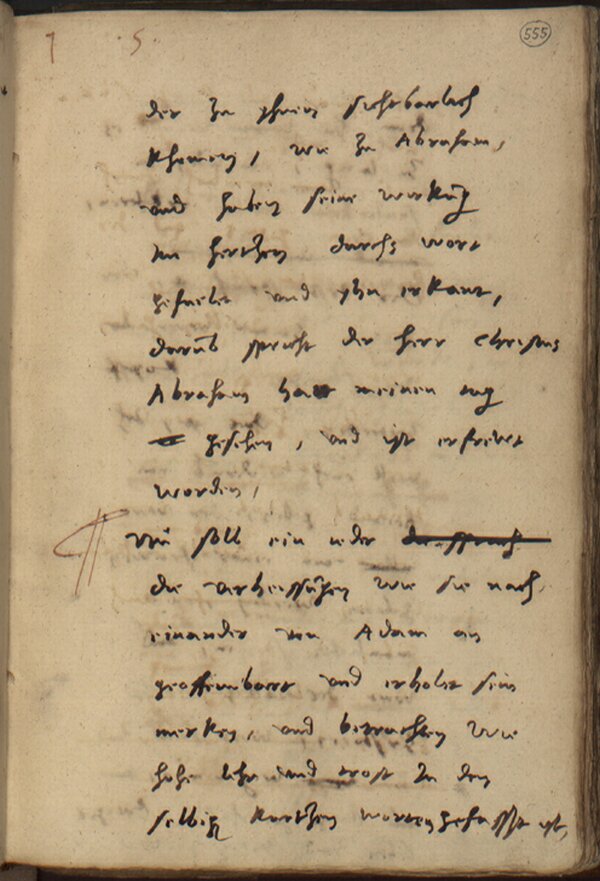 7 5. 555
der zu yhnen sichtbarlich
khomen, wie zu Abraham,
und haben seine wirkung
im hertzen durchs wort
gefuelet und yhn erkant,
darumb spricht der herr Christus
Abraham hatt meinen tag
gesehen, und ist erfrewt
worden,
Nu soll ein ieder die spruch
die verheissungen wie sie nach
einander von Adam an
geoffenbart und erholet sein
merken, und betrachten wie
hohe lehr und trost in den
selbigen kurtzen worten gefasst ist,